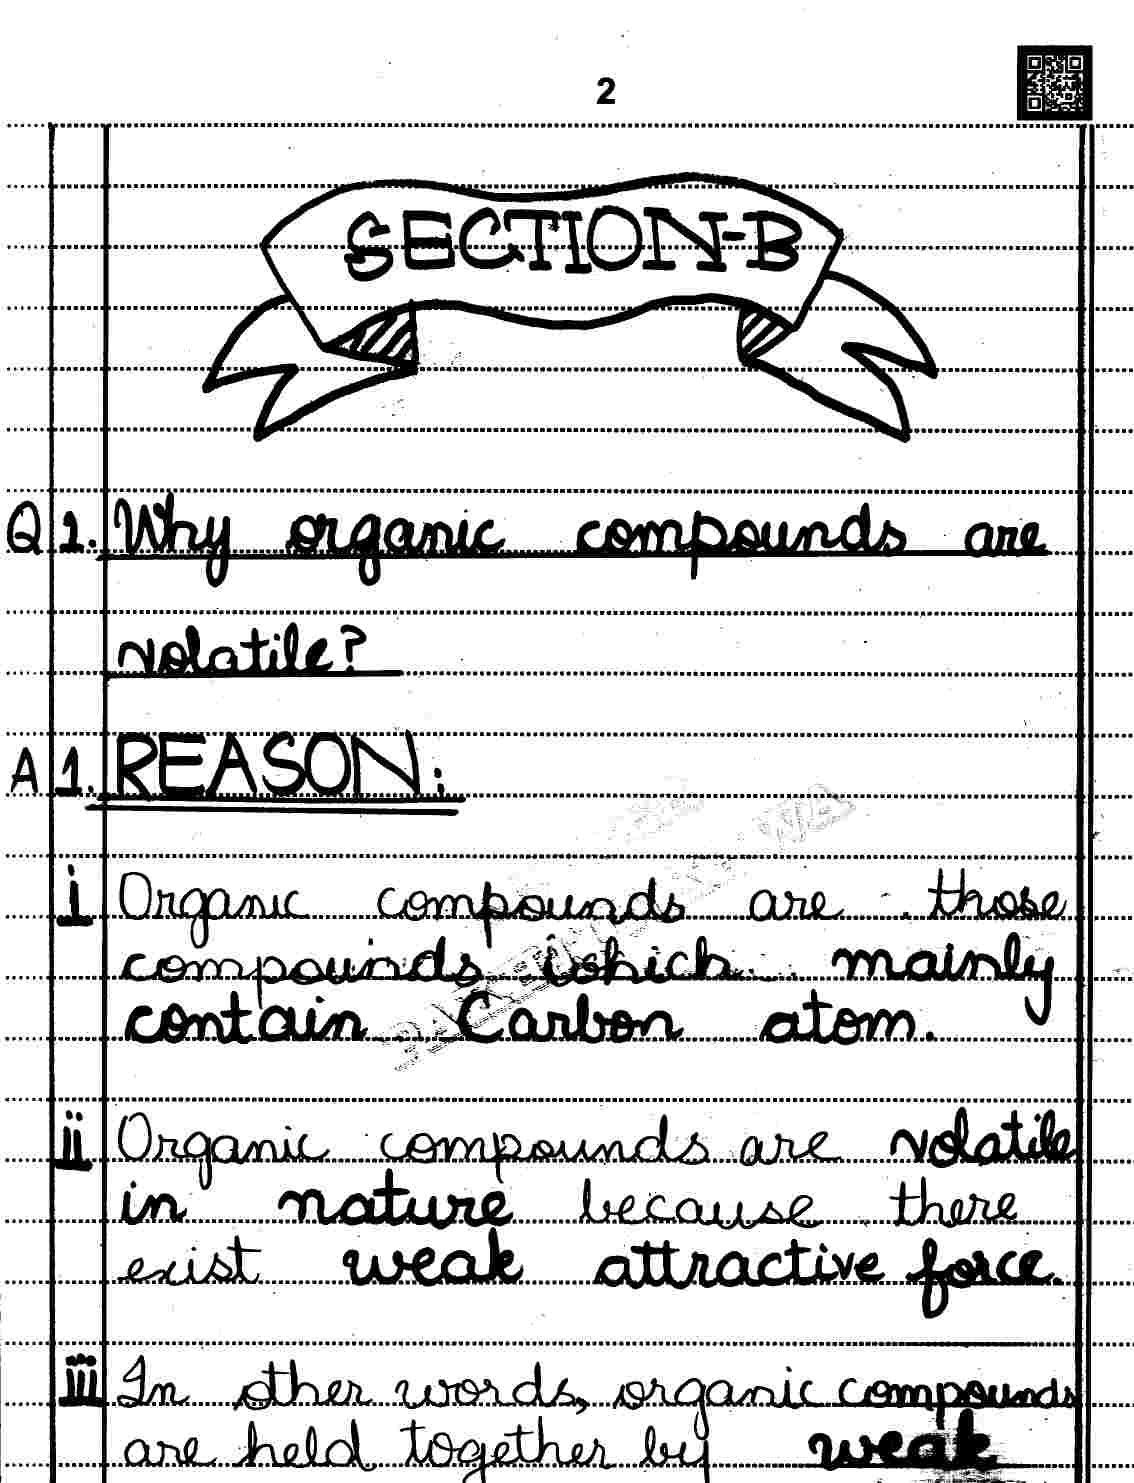 2
SECTION-B
Q 1. Why organic compounds are
volatile?
A 1. REASON:
i Organic compounds are those
compounds which mainly
contain Carbon atom.
ii Organic compounds are volatile
in nature because there
exist weak attractive force.
iii In other words, organic compounds
are held together by weak